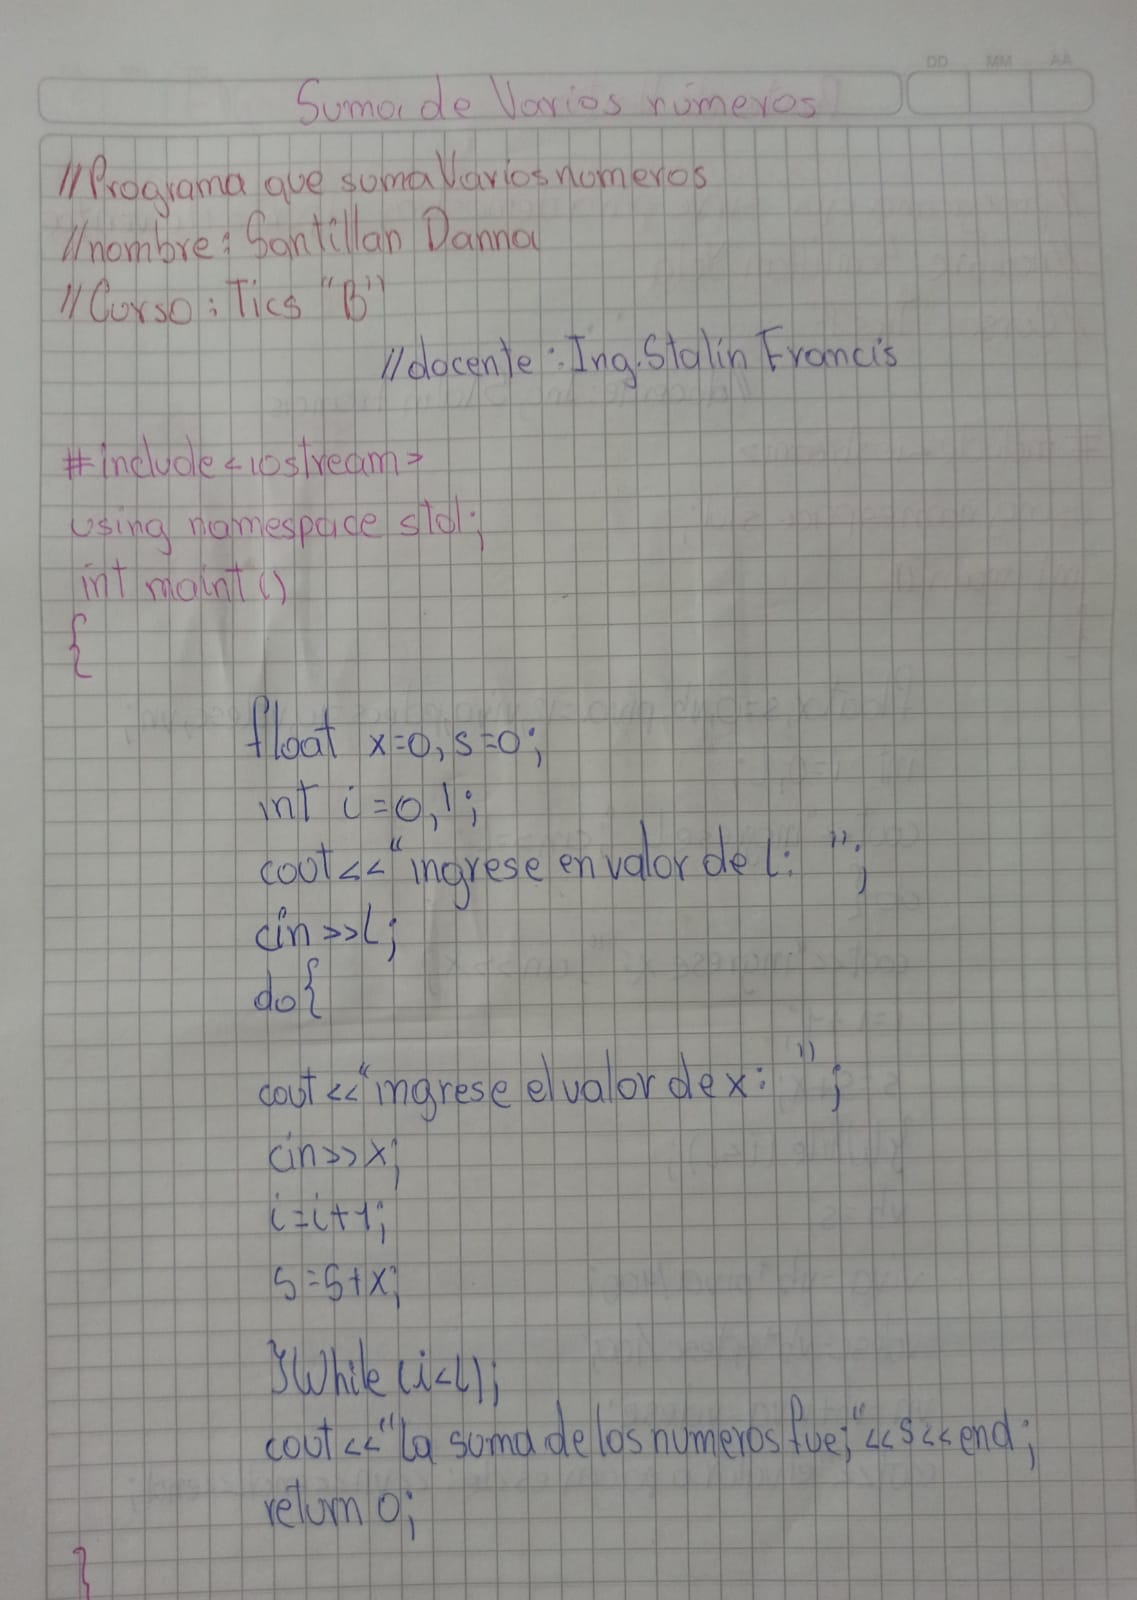 DD MM AA
Suma de Varios números
//Programa que suma Varios numeros
//nombre: Santillan Danna
//Curso: Tics "B"
//docente: Ing. Stalin Francis
#include <iostream>
using namespace std;
int maint ()
{
float x=0, s=0;
int i=0, l;
cout<<"ingrese en valor de l: ";
cin>>L;
do{
cout<<"ingrese el valor de x: ";
cin>>x;
i=i+1;
s=s+x;
}While (i<L);
cout<<"La suma de los numeros fue;"<<s<<end;
return 0;
}